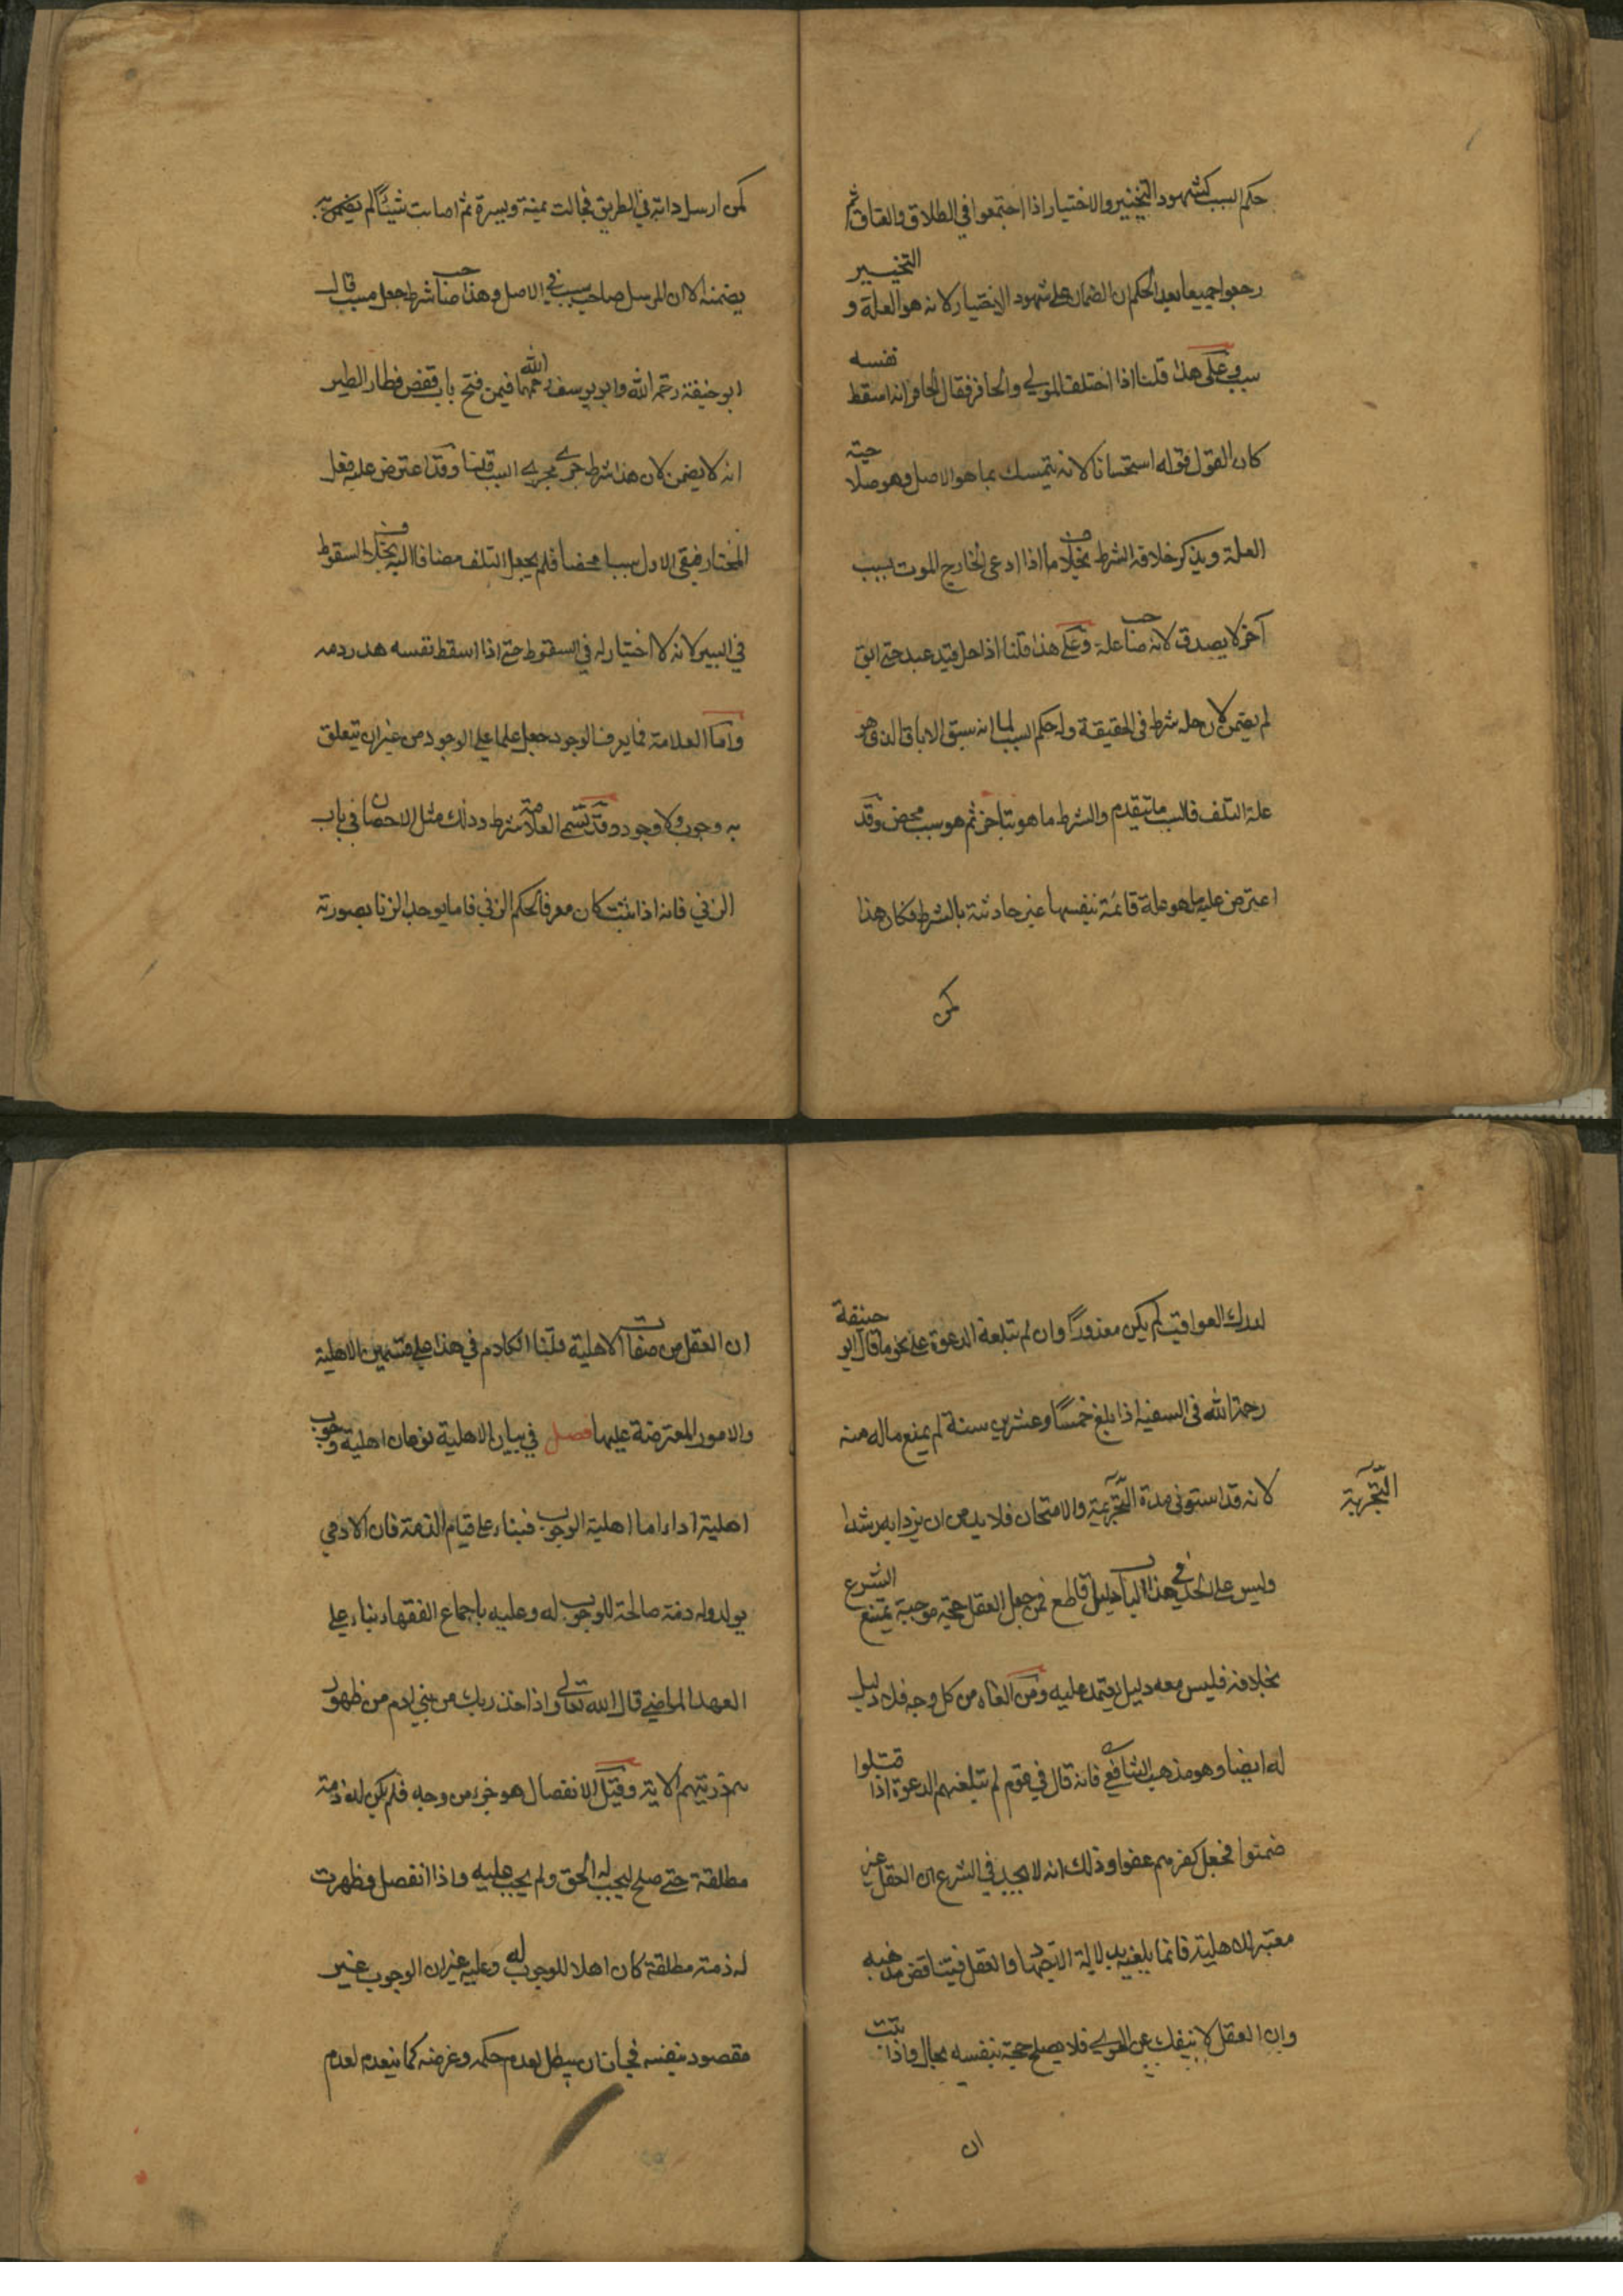 حكم السبب كشهود التخيير والاختيار اذا اجتمعوا في الطلاق والعتاق ثم
رجعوا جميعا بعد الحكم ان الضمان على شهود الاختيار لانه هو العلة و التخيير
سبب وعلى هذا قلنا اذا اختلف المولى والحافر فقال الحافر انه اسقط نفسه
كان القول قوله استحسانا لانه يتمسك بما هو الاصل وهو صلاحية
العلة وينكر خلافة الشرط بخلاف ما اذا ادعى الخارج الموت بسبب
آخر لا يصدق لانه صاحب علة وعلى هذا قلنا اذا حل قيد عبد حتى ابق
لم يضمن لان حله شرط في الحقيقة وله حكم السبب لما انه سبق الاباق الذي هو
علة التلف فالسبب ما يتقدم والشرط ما هو يتاخر ثم هو سبب محض وقد
اعترض عليه ما هو علة قائمة بنفسها غير حادثة بالشرط فكان هذا
كمن
كمن ارسل دابة في الطريق فجالت يمينة ويسرة ثم اصابت شيئا لم يضمن
يضمنه الا ان المرسل صاحب سبب في الاصل وهذا صاحب شرط جعل مسببا قال
ابو حنيفة رحمة الله وابو يوسف رحمهما الله فيمن فتح باب قفص فطار الطير
انه لا يضمن لان هذا شرط جرى مجرى السبب قلنا وقد اعترض عليه فعل
المختار فبقي الاول سببا محضا فلم يجعل التلف مضافا اليه بخلاف السقوط
في البير لانه لا اختيار له في السقوط حتى اذا اسقط نفسه هدر دمه
واما العلامة فما يعرف الوجود جعل علما على الوجود من غير ان يتعلق
به وجوب ولا وجود وقد تسمى العلامة شرطا وذلك مثل الاحصان في باب
الزني فانه اذا ثبت كان معرفا لحكم الزني فاما يوجب الزنا بصورته
لدرك العواقب لم يكن معذورًا وان لم تبلغه الدعوة على نحو ما قال ابو حنيفة
رحمة الله في السفيه اذا بلغ خمسًا وعشرين سنة لم يمنع ماله منه
لانه قد استوفى مدة التجربة والامتحان فلا بد من ان يزداد به رشدا
التجربة
وليس على الحد في هذا الباب دليل قاطع فمن جعل العقل حجة موجبة يمتنع الشرع
بخلافه فليس معه دليل يعتمد عليه ومن الغاه من كل وجه فلا دليل
له ايضا وهو مذهب الشافعي فانه قال في قوم لم تبلغهم الدعوة اذا قتلوا
ضمنوا فجعل كفرهم عفوا وذلك انه لا يجد في الشرع ان العقل غير
معتبر للاهلية فانما يلغيه بدلالة الاجتهاد والعقل فيتناقض مذهبه
وان العقل لا ينفك عن الهوى فلا يصلح حجة بنفسه بحال واذا ثبت
ان
ان العقل من صفات الاهلية قلنا الكلام في هذا على قسمين الاهلية
والامور المعترضة عليها فصل في بيان الاهلية نوعان اهلية وجوب
اهلية اداء اما اهلية الوجوب فبناء على قيام الذمة فان الادمي
يولد وله ذمة صالحة للوجوب له وعليه باجماع الفقهاء بناء على
العهد الماضي قال الله تعالى واذ اخذ ربك من بني ادم من ظهور
هم ذريتهم الاية وقبل الانفصال هو جزء من وجه فلم يكن له ذمة
مطلقة حتى صلح ليجب له الحق ولم يجب عليه واذا انفصل وظهرت
له ذمة مطلقة كان اهلا للوجوب له وعليه غير ان الوجوب غير
مقصود بنفسه فجاز ان يبطل لعدم حكمه وغرضه كما ينعدم لعدم